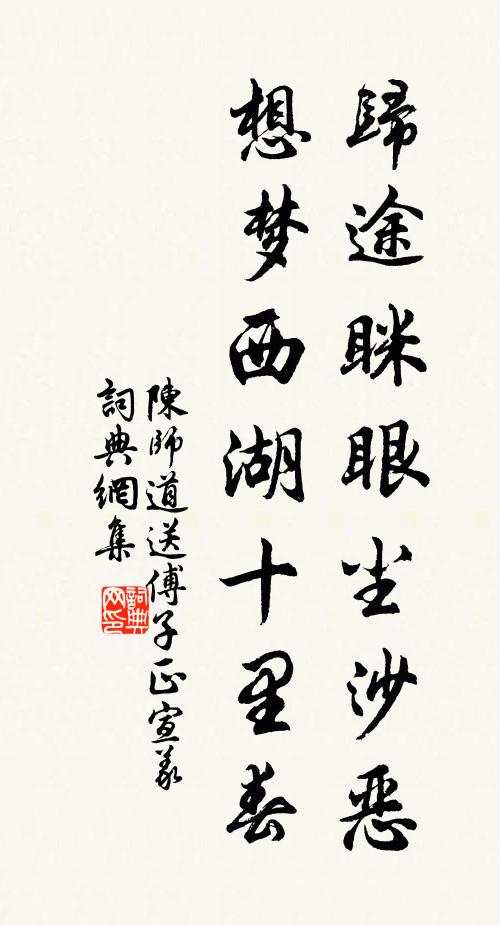 歸途眯眼尘沙恶
想梦西湖十里春
陳師道送傅子正宣義
詞典網集
詞典网印